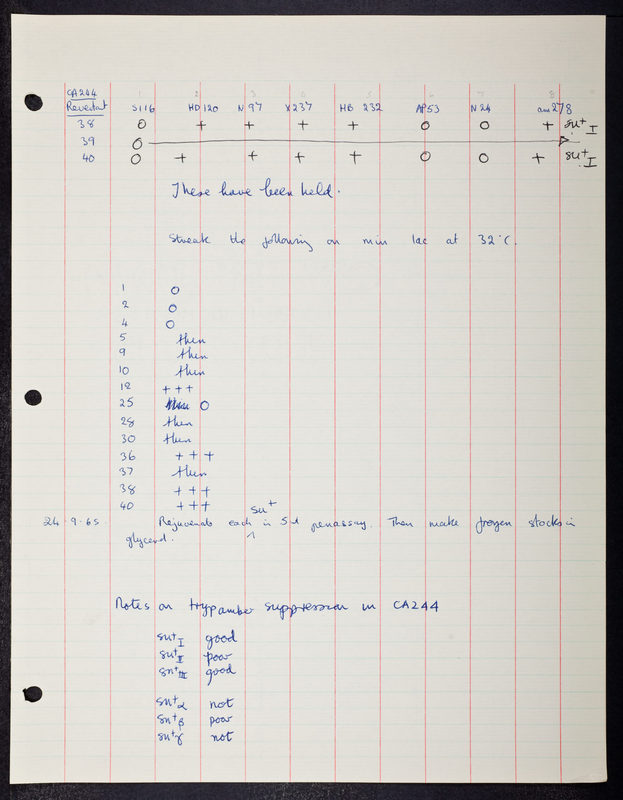 CA244 1 2 3 4 5 6 7 8
Revertant S116 HD120 N97 X237 HB 232 AP53 N24 am278
38 O + + + + O O + su+ I
39 O
40 O + + + + O O + su+ I
These have been held.
Streak the following on min lac at 32°C.
1 O
2 O
4 O
5 then
9 then
10 then
12 + + +
25 O
28 then
30 then
36 + + +
37 then
38 + + +
40 + + +
su+
24.9.65. Rejuvenate each in 5ml penassay. Then make frozen stocks in
glycerol.
Notes on trypamber suppression in CA244
su+ I good
su+ II poor
su+ III good
su+ α not
su+ β poor
su+ γ not